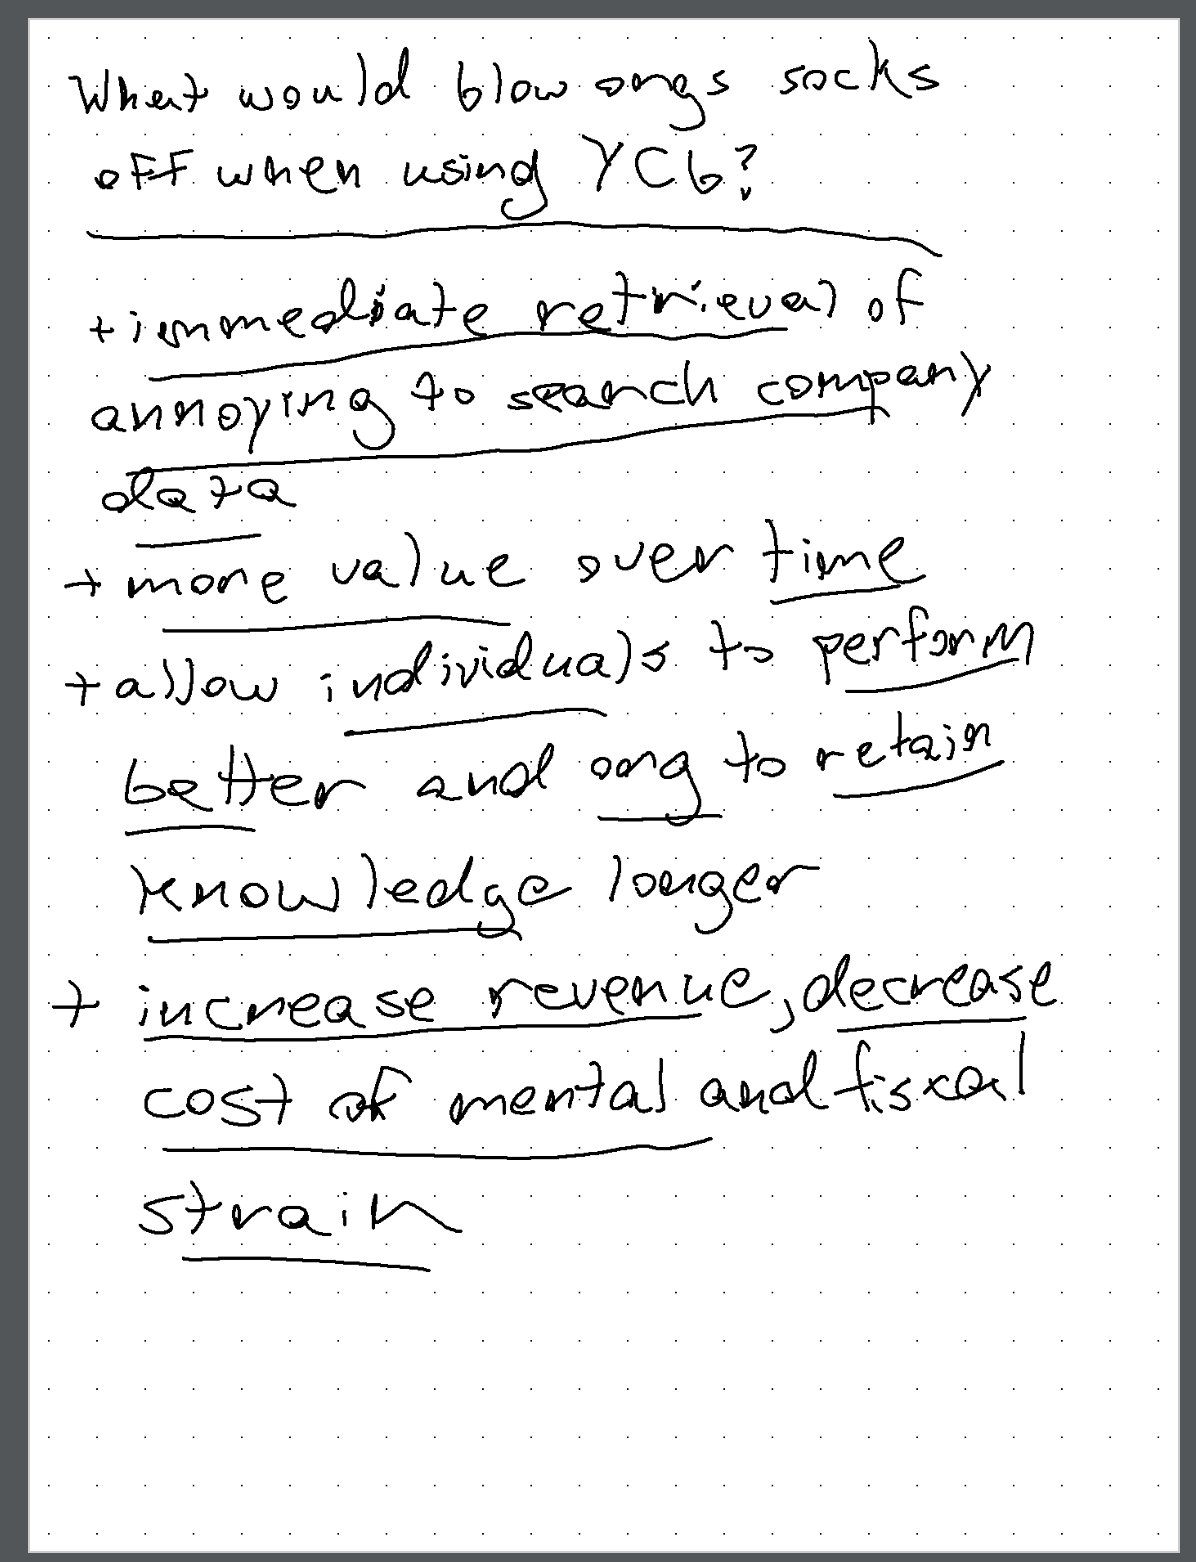 What would blow orgs socks
off when using YCb?
+ immediate retrieval of
annoying to search company
data
+ more value over time
+ allow individuals to perform
better and org to retain
knowledge longer
+ increase revenue, decrease
cost of mental and fiscal
strain